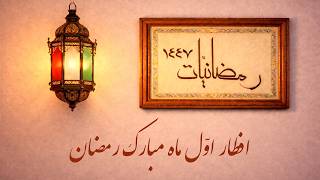 رمضانيّات
١٤٤٧
افطار اوّل ماه مبارک رمضان